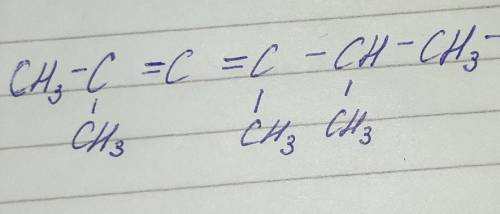 CH₃-C=C=C-CH-CH₃-
CH₃ CH₃ CH₃